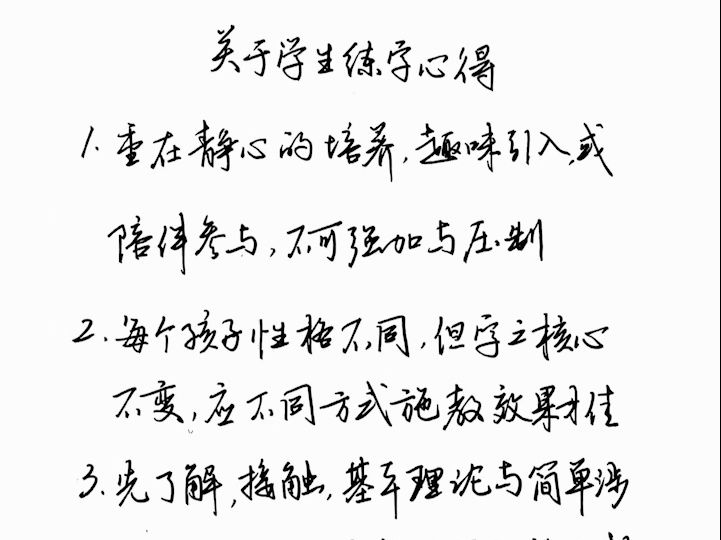 关于学生练字心得
1.重在静心的培养,趣味引入,或
陪伴参与,不可强加与压制
2.每个孩子性格不同,但字之核心
不变,应不同方式施教效果才佳
3.先了解,接触,基本理论与简单涉